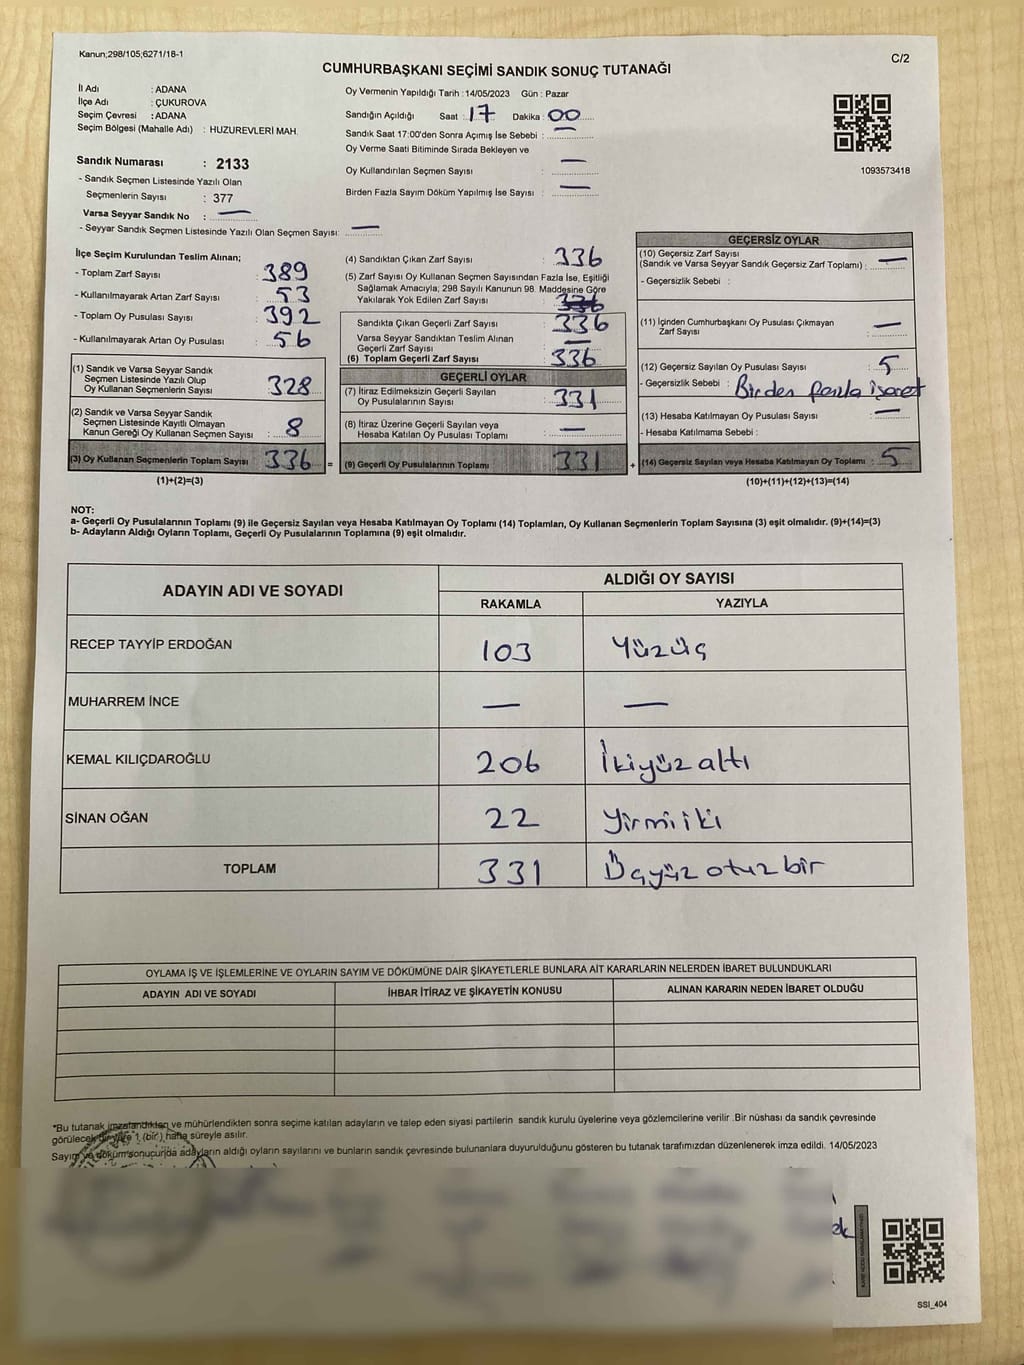 Kanun;298/105;6271/18-1
C/2
CUMHURBAŞKANI SEÇİMİ SANDIK SONUÇ TUTANAĞI
İl Adı : ADANA
İlçe Adı : ÇUKUROVA
Seçim Çevresi : ADANA
Seçim Bölgesi (Mahalle Adı) : HUZUREVLERİ MAH.
Sandık Numarası : 2133
- Sandık Seçmen Listesinde Yazılı Olan
Seçmenlerin Sayısı : 377
Varsa Seyyar Sandık No : —
- Seyyar Sandık Seçmen Listesinde Yazılı Olan Seçmen Sayısı: —
Oy Vermenin Yapıldığı Tarih : 14/05/2023 Gün : Pazar
Sandığın Açıldığı Saat : 17 Dakika : 00
Sandık Saat 17:00'den Sonra Açımış İse Sebebi : —
Oy Verme Saati Bitiminde Sırada Bekleyen ve
Oy Kullandırılan Seçmen Sayısı : —
Birden Fazla Sayım Döküm Yapılmış İse Sayısı : —
1093573418
İlçe Seçim Kurulundan Teslim Alınan;
- Toplam Zarf Sayısı : 389
- Kullanılmayarak Artan Zarf Sayısı : 53
- Toplam Oy Pusulası Sayısı : 392
- Kullanılmayarak Artan Oy Pusulası : 56
(1) Sandık ve Varsa Seyyar Sandık
Seçmen Listesinde Yazılı Olup
Oy Kullanan Seçmenlerin Sayısı : 328
(2) Sandık ve Varsa Seyyar Sandık
Seçmen Listesinde Kayıtlı Olmayan
Kanun Gereği Oy Kullanan Seçmen Sayısı : 8
(3) Oy Kullanan Seçmenlerin Toplam Sayısı : 336 =
(1)+(2)=(3)
(4) Sandıktan Çıkan Zarf Sayısı : 336
(5) Zarf Sayısı Oy Kullanan Seçmen Sayısından Fazla İse, Eşitliği
Sağlamak Amacıyla; 298 Sayılı Kanunun 98. Maddesine Göre
Yakılarak Yok Edilen Zarf Sayısı : 336
Sandıkta Çıkan Geçerli Zarf Sayısı : 336
Varsa Seyyar Sandıktan Teslim Alınan
Geçerli Zarf Sayısı : —
(6) Toplam Geçerli Zarf Sayısı : 336
GEÇERLİ OYLAR
(7) İtiraz Edilmeksizin Geçerli Sayılan
Oy Pusulalarının Sayısı : 331
(8) İtiraz Üzerine Geçerli Sayılan veya
Hesaba Katılan Oy Pusulası Toplamı : —
(9) Geçerli Oy Pusulalarının Toplamı : 331 +
GEÇERSİZ OYLAR
(10) Geçersiz Zarf Sayısı
(Sandık ve Varsa Seyyar Sandık Geçersiz Zarf Toplamı) : —
- Geçersizlik Sebebi :
(11) İçinden Cumhurbaşkanı Oy Pusulası Çıkmayan
Zarf Sayısı : —
(12) Geçersiz Sayılan Oy Pusulası Sayısı : 5
- Geçersizlik Sebebi : Birden fazla işaret
(13) Hesaba Katılmayan Oy Pusulası Sayısı : —
- Hesaba Katılmama Sebebi :
(14) Geçersiz Sayılan veya Hesaba Katılmayan Oy Toplamı : 5
(10)+(11)+(12)+(13)=(14)
NOT:
a- Geçerli Oy Pusulalarının Toplamı (9) ile Geçersiz Sayılan veya Hesaba Katılmayan Oy Toplamı (14) Toplamları, Oy Kullanan Seçmenlerin Toplam Sayısına (3) eşit olmalıdır. (9)+(14)=(3)
b- Adayların Aldığı Oyların Toplamı, Geçerli Oy Pusulalarının Toplamına (9) eşit olmalıdır.
ADAYIN ADI VE SOYADI
ALDIĞI OY SAYISI
RAKAMLA YAZIYLA
RECEP TAYYİP ERDOĞAN 103 Yüzüç
MUHARREM İNCE — —
KEMAL KILIÇDAROĞLU 206 İkiyüz altı
SİNAN OĞAN 22 Yirmi iki
TOPLAM 331 Üçyüz otuz bir
OYLAMA İŞ VE İŞLEMLERİNE VE OYLARIN SAYIM VE DÖKÜMÜNE DAİR ŞİKAYETLERLE BUNLARA AİT KARARLARIN NELERDEN İBARET BULUNDUKLARI
ADAYIN ADI VE SOYADI İHBAR İTİRAZ VE ŞİKAYETİN KONUSU ALINAN KARARIN NEDEN İBARET OLDUĞU
*Bu tutanak imzalandıktan ve mühürlendikten sonra seçime katılan adayların ve talep eden siyasi partilerin sandık kurulu üyelerine veya gözlemcilerine verilir .Bir nüshası da sandık çevresinde
görülecek bir yere 1 (bir ) hafta süreyle asılır.
Sayım ve döküm sonucunda adayların aldığı oyların sayılarını ve bunların sandık çevresinde bulunanlara duyurulduğunu gösteren bu tutanak tarafımızdan düzenlenerek imza edildi. 14/05/2023
SSI_404